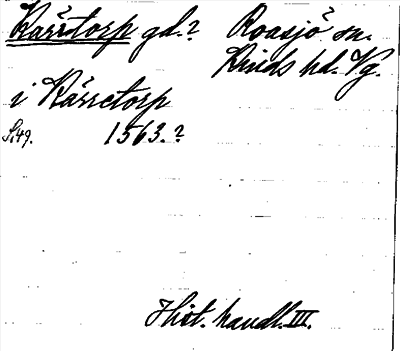 Kärrtorp gd.? Roasjö sn.
Kinds hd. Vg.
i Kärretorp
S.49. 1563.?
Hist. handl. III.